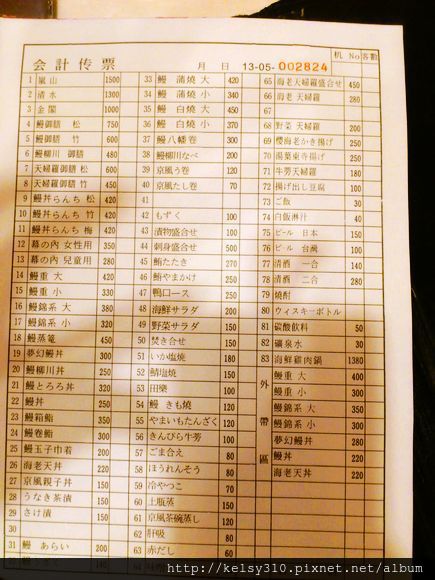 会計伝票 月 日 13-05-002824 机 No 客數
1 嵐山 1500
2 清水 1300
3 金閣 1000
4 鰻御膳 松 750
5 鰻御膳 竹 600
6 鰻柳川 御膳 480
7 天婦羅御膳 松 600
8 天婦羅御膳 竹 450
9 鰻丼らんち 松 420
10 鰻丼らんち 竹 420
11 鰻丼らんち 梅 420
12 幕の內 女性用 350
13 幕の內 兒童用 280
14 鰻重 大 420
15 鰻重 小 330
16 鰻錦系 大 380
17 鰻錦系 小 320
18 鰻蒸篭 450
19 夢幻鰻丼 300
20 鰻柳川丼 250
21 鰻とろろ丼 320
22 鰻丼 250
23 鰻箱鮨 350
24 鰻卷鮨 300
25 鰻玉子巾着 200
26 海老天丼 220
27 京風親子丼 150
28 うなき茶漬 150
29 さけ漬 150
30
31 鰻 あらい 200
33 鰻 蒲燒 大 420
34 鰻 蒲燒 小 340
35 鰻 白燒 大 450
36 鰻 白燒 小 370
37 鰻八幡卷 300
38 鰻柳川なべ 200
39 京風う卷 120
40 京風たし卷 70
41
42 もずく 100
43 漬物盛合せ 100
44 刺身盛合せ 500
45 鮪たたき 270
46 鮪やまかけ 250
47 鴨ロース 250
48 海鮮サラダ 200
49 野菜サラダ 150
50 焚き合せ 150
51 いか塩燒 180
52 鯖塩燒 150
53 田樂 100
54 鰻 きも燒 120
55 やまいもたんざく 120
56 きんぴら牛芳 100
57 ごま合え 80
58 ほうれんそう 80
59 冷やつこ 70
60 土瓶蒸
61 京風茶碗蒸し
62 肝吸
63 赤だし
65 海老天婦羅盛合せ 450
66 海老 天婦羅
67
68 野菜 天婦羅 200
69 櫻海老かき揚げ 250
70 湯葉東寺揚げ 250
71 牛蒡天婦羅 180
72 揚げ出し豆腐 100
73 ご飯 30
74 白飯淋汁 40
75 ビール 日本 150
76 ビール 台灣 100
77 清酒 一合 140
78 清酒 二合 280
79 燒酎
80 ウィスキーボトル
81 碳酸飲料 50
82 礦泉水 30
83 海鮮雞肉鍋 1380
外帶區
鰻重 大 400
鰻重 小 300
鰻錦系 大 350
鰻錦系 小 300
夢幻鰻丼 280
鰻丼 220
海老天丼 220
http://kelsy310.pixnet.net/album